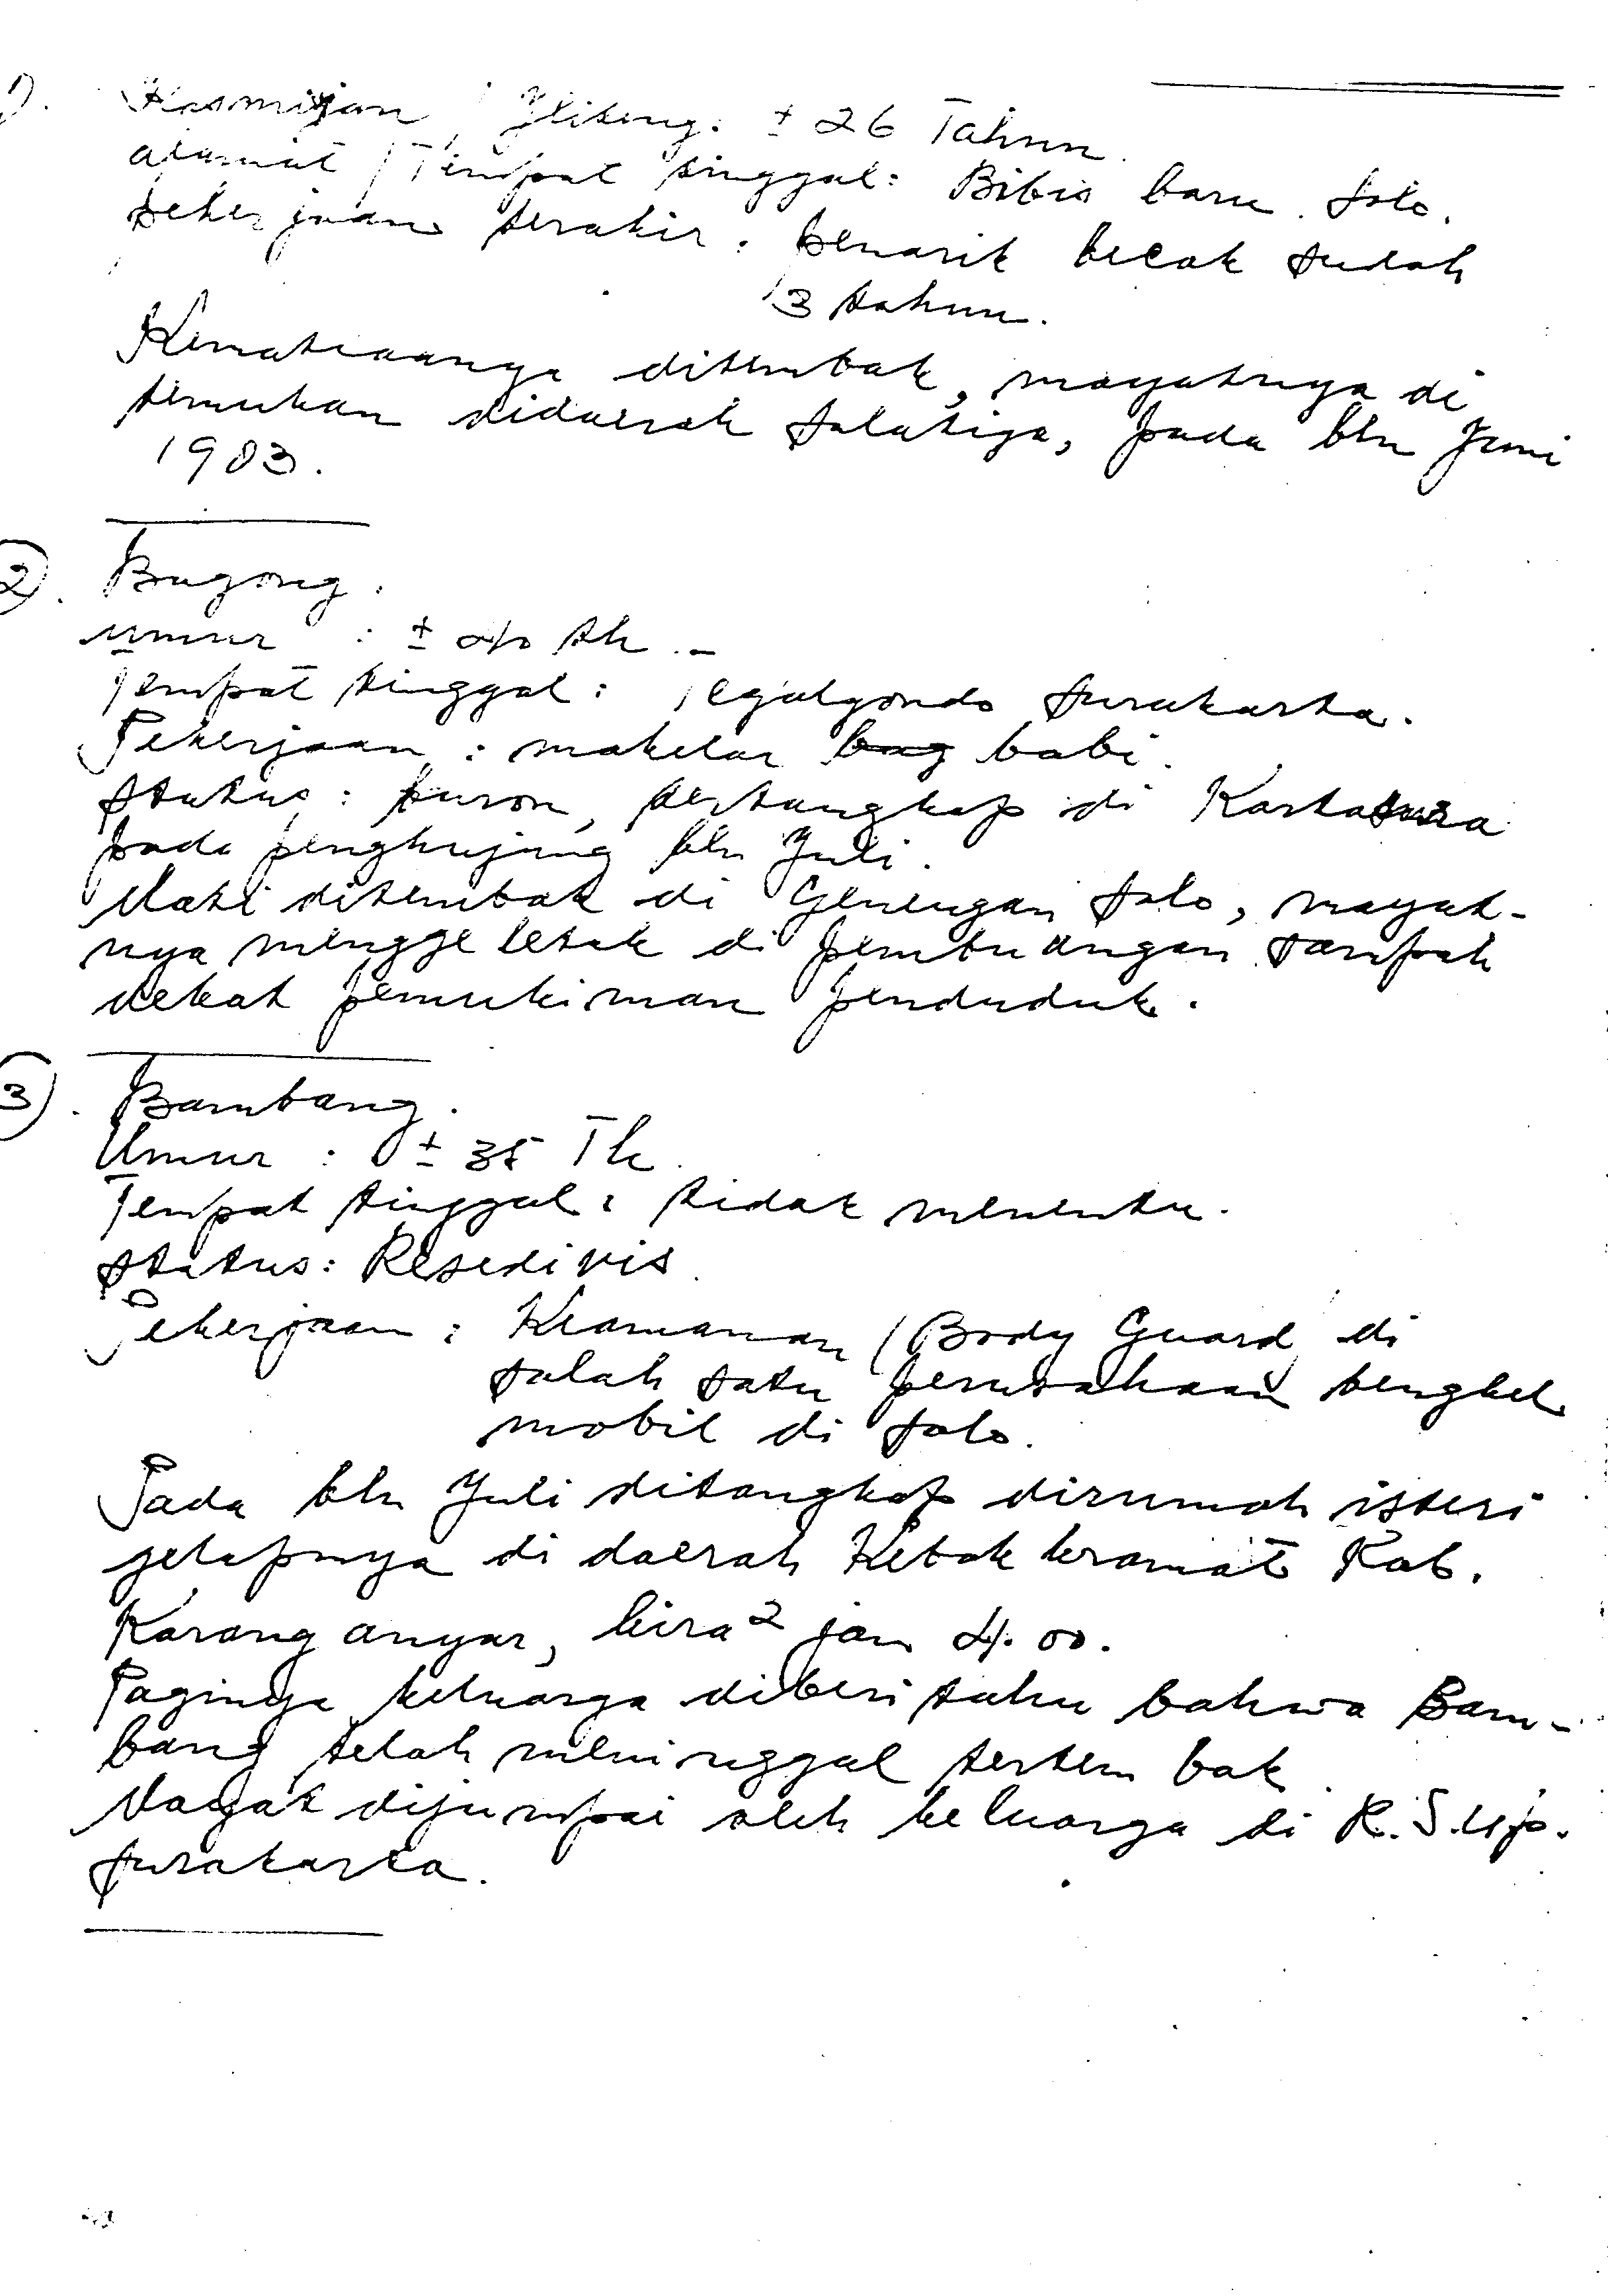 1). Kasmijan / Jliteng. ± 26 Tahun.
alamat / Tempat tinggal: Bibis baru. Solo.
pekerjaan terakir: penarik becak sudah
3 tahun.
Kematiaanya ditembak, mayatnya di
temukan didaerah Salatiga, pada bln Juni
1983.
2). Bagong.
umur : ± 40 th.-
Tempat tinggal: Tegalgondo Surakarta.
Pekerjaan : makelar bag babi.
Status: buron, tertangkap di Kartasura
pada penghujung bln Juli.
Mati ditembak di Genengan Solo, mayat-
nya menggeletak di pembuangan sampah
dekat pemukiman penduduk.
3). Bambang.
Umur : ± 35 Th.
Tempat tinggal: tidak menentu.
Status: Resedivis.
Pekerjaan : Keamanan / Body Guard di
salah satu perusahaan bengkel
mobil di Solo.
Pada bln Juli ditangkap dirumah isteri
gelapnya di daerah Kebak kramat Kab.
Karang anyar, kira2 jam 4.00.
Paginya keluarga diberi tahu bahwa Bam-
bang telah meninggal tertembak.
Mayat dijumpai oleh keluarga di R.S.Up.
Surakarta.